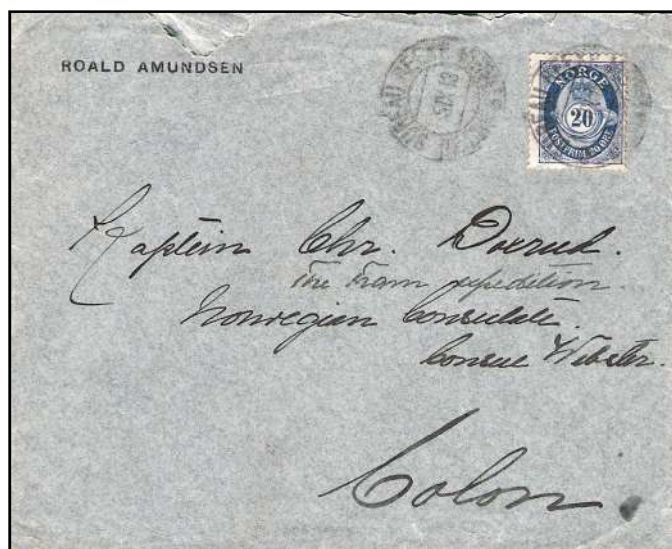 ROALD AMUNDSEN
NORGE
20
POSTFRIM. 20 ØRE
Kaptein Chr. Doxrud.
The Fram expedition.
Norwegian Consulate.
Consul Webster.
Colon